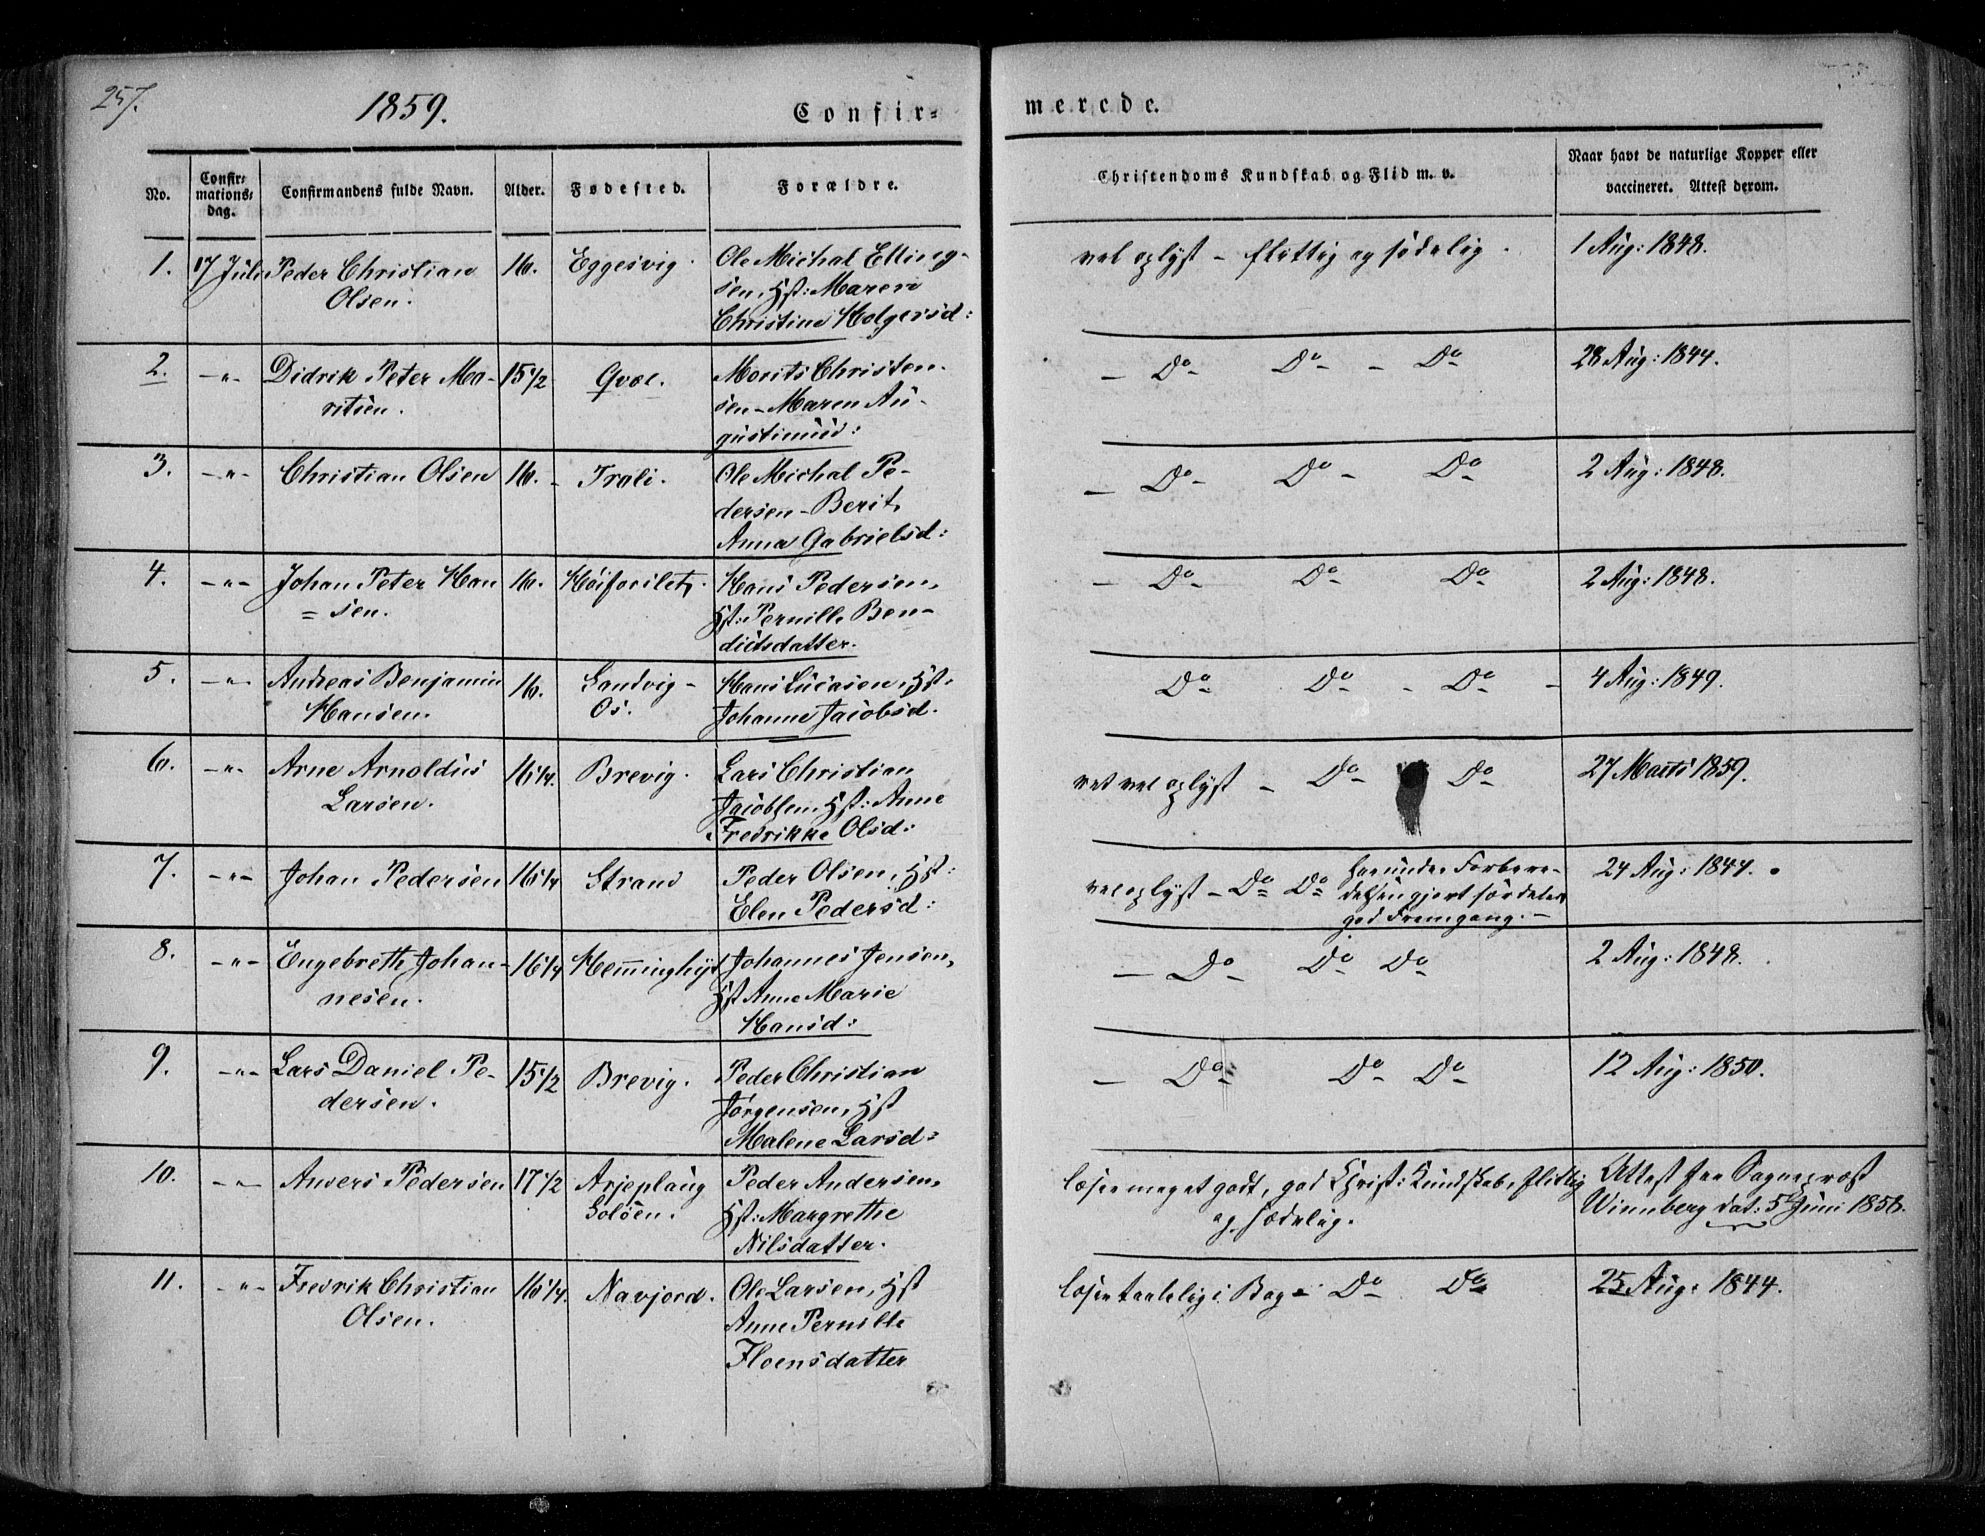 257.
1859.
Confir=
merede.
No.
Confir=
mations=
dag.
Confirmandens fulde Navn.
Alder.
Fødested.
Forældre.
Christendoms Kundskab og Flid m. v.
Naar havt de naturlige Kopper eller
vaccineret. Attest derom.
1. 17 Juli Peder Christian 16. Eggesvig. Ole Michal Elling-
Olsen. sen, Hst: Maren
Christine Holgersd:
vel oplyst - flittig og sædelig. 1 Aug: 1848.
2. -"- Didrik Peter Mo- 15 1/2 Qvæl. Morits Christen-
ritsen. sen - Maren Au-
gustinusd:
- Do - Do - Do 28 Aug: 1844.
3. -"- Christian Olsen 16. - Trøli. Ole Michal Pe-
dersen - Berit
Anna Gabrielsd:
- Do - Do - Do 2 Aug: 1848.
4. -"- Johan Peter Han 16. Høiforslet. Hans Pedersen,
= sen. Hst: Pernille Ben-
dictsdatter.
- Do Do Do 2 Aug: 1848.
5. -"- Andreas Benjamin 16. Sandvig- Hans Lucasen, Hst.
Hansen. Os. Johanne Jacobsd.
Do Do - Do - 4 Aug: 1849.
6. -"- Arne Arnoldus 16 1/4. Brevig. Lars Christian
Larsen. Jacobsen, Hst: Anne
Fredrikke Olsd:
ret vel oplyst - Do Do 27 Marts 1859.
7. -"- Johan Pedersen 16 1/4 Strand Peder Olsen, Hst:
Elen Pedersd:
vel oplyst - Do Do har under Forbere-
delsen gjort særdeles
god Fremgang. - 24 Aug: 1844.
8. -"- Engebreth Johan- 16 1/4 Hemminghyt Johannes Jensen,
nesen. Hst Anne Marie
Hansd:
- Do - Do Do 2 Aug: 1848.
9. -"- Lars Daniel Pe- 15 1/2 Brevig. Peder Christian
dersen. Jørgensen, Hst
Malene Larsd:
- Do Do Do 12 Aug: 1850.
10. -"- Anders Pedersen 17 1/2 Arjeplaug Peder Andersen,
Soløen. Hst: Margrethe
Nilsdatter.
læser meget godt, god Christ: Kundskab, flittig Attest fra Sognepræst
og sædelig. Winnberg dat: 5 Juni 1858.
11. -"- Fredrik Christian 16 1/4. Navjord. Ole Larsen, Hst
Olsen. Anne Pernille
Floensdatter
læser taalelig i Bog - Do Do 25 Aug: 1844.